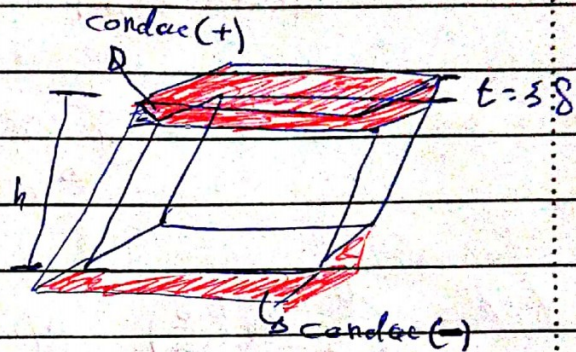 condac(+)
t = 3δ
h
condac(-)